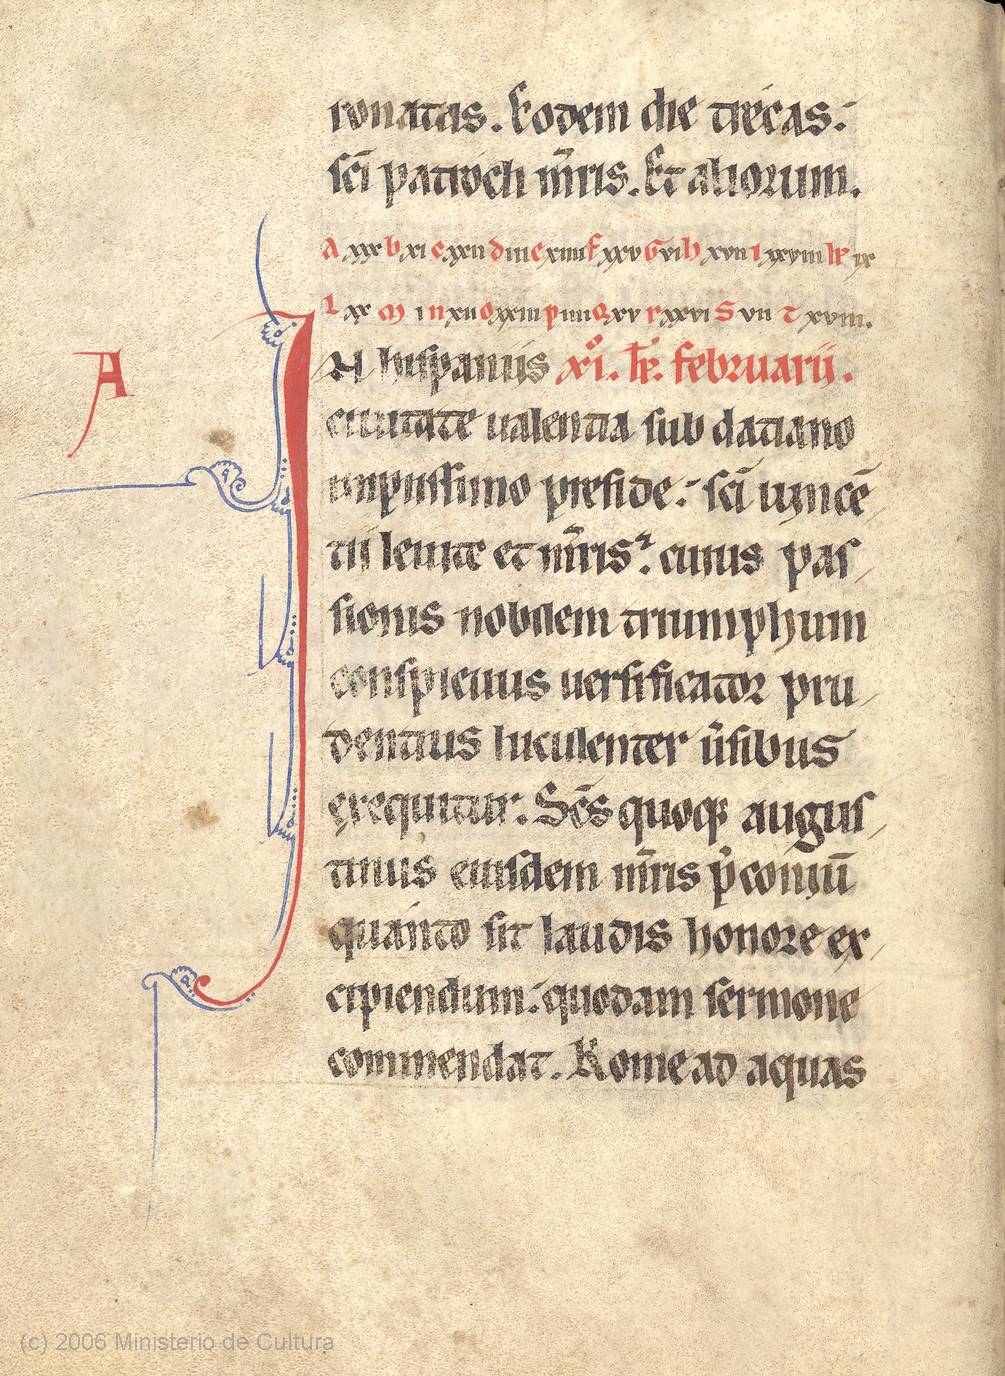 ronatas. Eodem die trecas:
sci̅ patrocli m̅ris. Et aliorum.
A xxx b xi c xxii d iii e xiiii f xxv G vi h xvii i xxviii k ix
l xx m i n xii o xxiii p iiii q xv r xxvi s vii t xviii.
A
IN hispaniis xi. kl̅. februarii.
ciuitate ualentia sub datiano
impiissimo preside: sci̅ uyncē
tii leuite et m̅ris: cuius pas
sionis nobilem triumphum
conspicuus uersificator pru
dentius luculenter u̅sibus
exequitur. Sc̅s quoq; augus
tinus eiusdem m̅ris p̱ coniū
quanto sit laudis honore ex
cipiendum: quodam sermone
commendat. Rome ad aquas
(c) 2006 Ministerio de Cultura